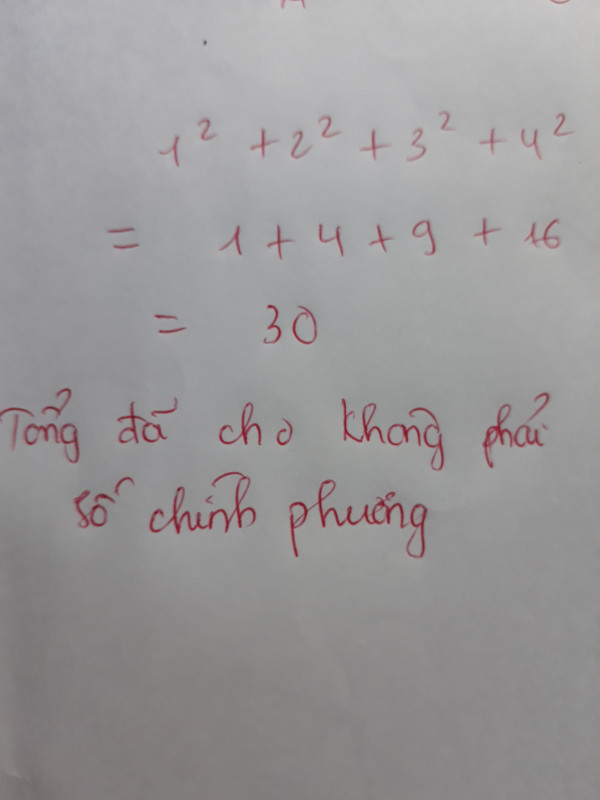 1² + 2² + 3² + 4²
= 1 + 4 + 9 + 16
= 30
Tổng đã cho không phải
số chính phương